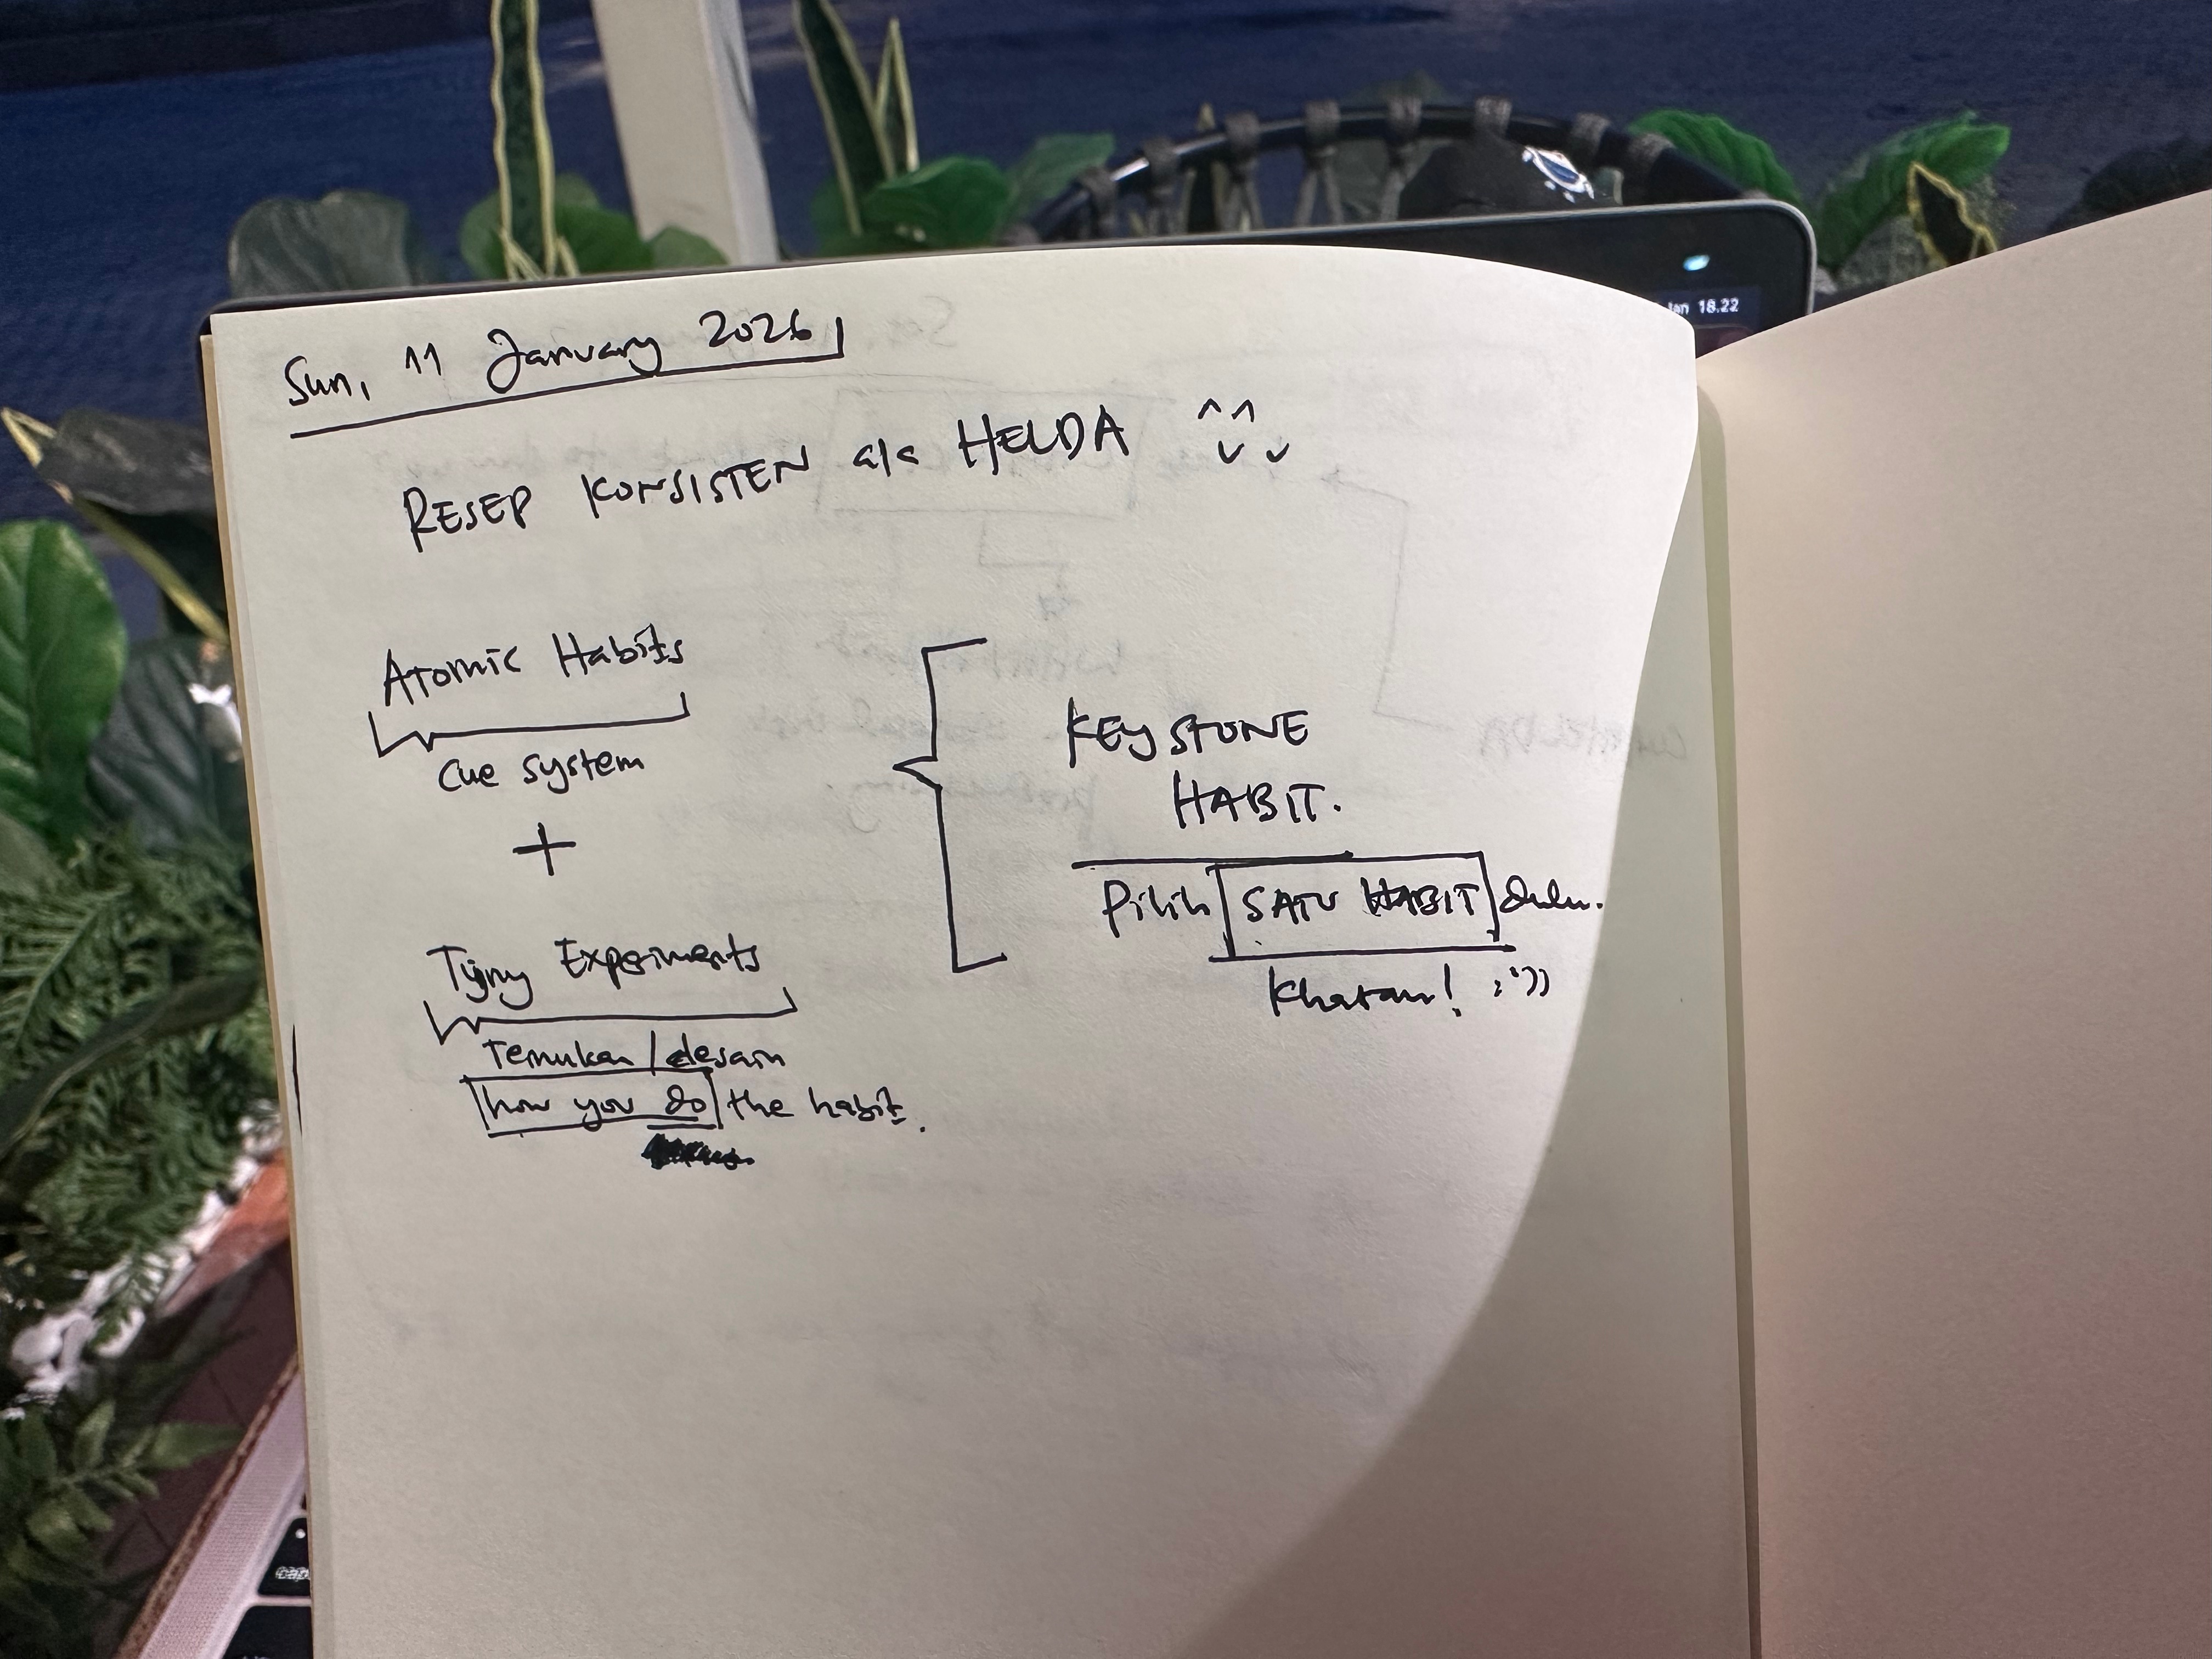 Sun, 11 January 2026
RESEP KONSISTEN ala HELDA ^^
Atomic Habits
Cue system
+
Tiyny Experiments
Temukan / desain
how you do the habit.
KEYSTONE
HABIT.
Pilih SATU HABIT dulu.
Khatam! :'))
Jan 18.22